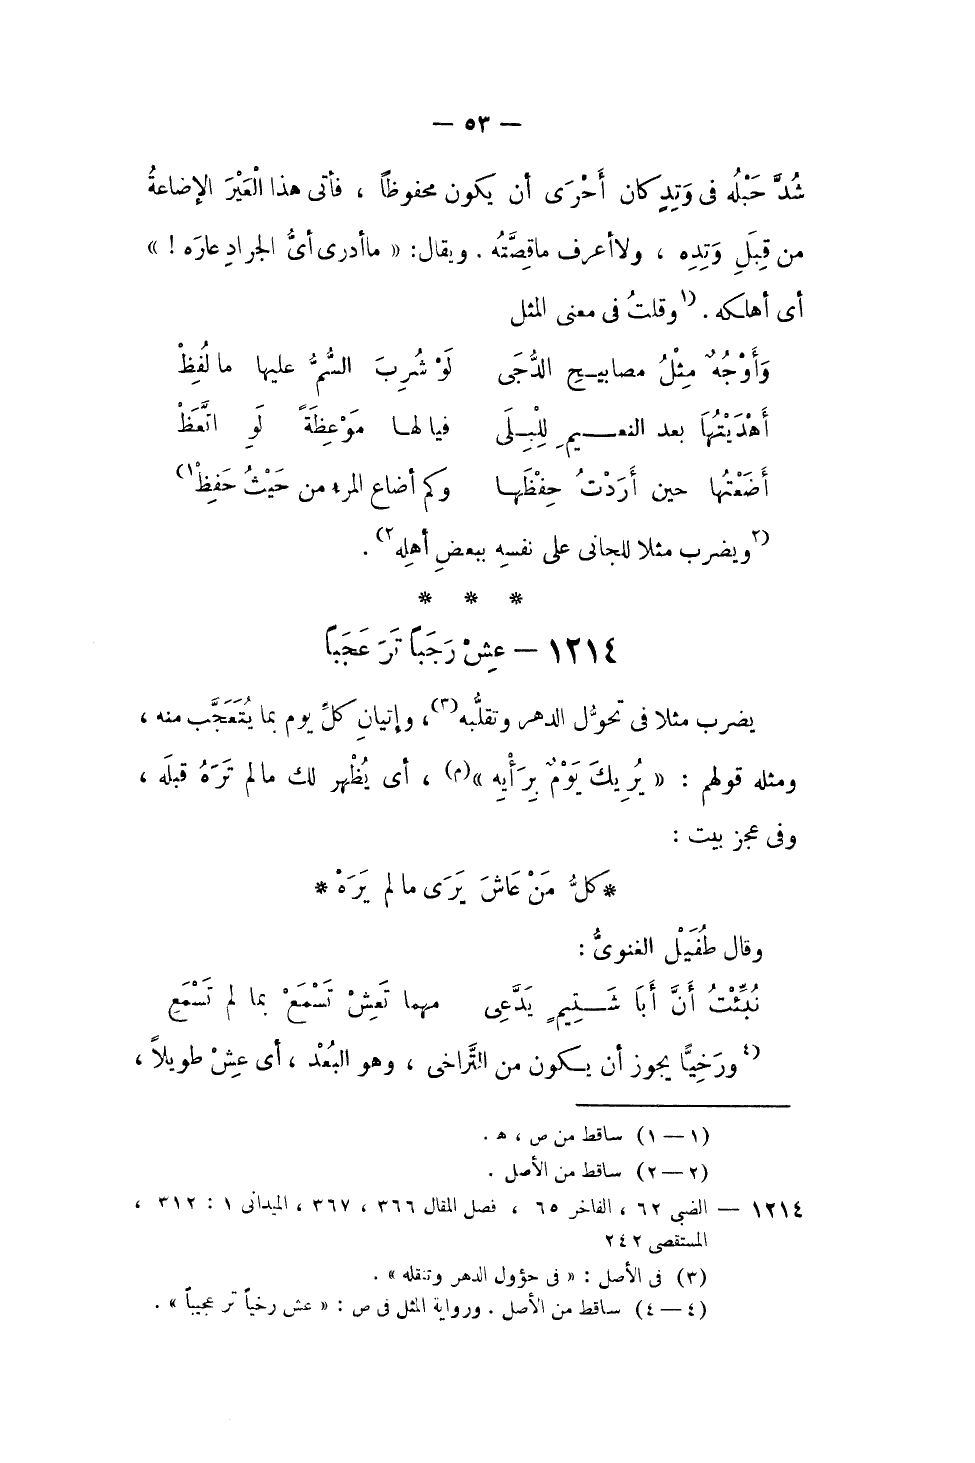 — ٥٣ —
شُدَّ حَبْلُه فى وَتِدٍ كان أَحْرَى أن يكون محفوظاً ، فأتى هذا الْعَيْرَ الإضاعةُ
من قِبَلِ وَتِدِه ، ولا أعرف ماقِصَّتُه . ويقال: « ماأدرى أىُّ الجرادِ عارَه ! »
أى أهلكه . (١وقلتُ فى معنى المثل
وَأَوْجُهٌ مِثْلُ مصابيـحِ الدُّجَى لَوْ شُرِبَ السُّمُّ عليها ما لُفِظْ
أَهْدَيْتُهَا بعد النعـــيمِ لِلْبِـلَى فيا لهـا مَوْعِظَةً لَوِ اتَّعَظْ
أَضَعْتُها حين أَرَدْتُ حِفْظَهـا وكم أضاع المرء من حَيْثُ حَفِظْ١)
(٢ويضرب مثلا للجانى على نفسِه ببعضِ أهلِه٢) .
* * *
١٢١٤ – عِشْ رَجَباً تَرَ عَجَباً
يضرب مثلا فى تحوُّل الدهر وتقلُّبه(٣)، وإتيانِ كلِّ يوم بما يُتَعَجَّب منه ،
ومثله قولهم : « يُرِيكَ يَوْمٌ بِرَأْيِه »(م) ، أى يُظْهر لك مالم تَرَهُ قبلَه ،
وفى عجز بيت :
* كلُّ مَنْ عَاشَ يَرَى ما لم يَرَهْ *
وقال طُفَيْل الغنوىُّ :
نُبِّئْتُ أَنَّ أَبَا شَـــتِيمٍ يَدَّعِى مهما تَعِشْ تَسْمَعْ بما لم تَسْمَعِ
(٤ورَخِيًّا يجوز أن يـكون من التَّراخى ، وهو البُعْد ، أى عِشْ طويلاً ،
(١ – ١) ساقط من ص ، ھ .
(٢ – ٢) ساقط من الأصل .
١٢١٤ — الضبى ٦٢ ، الفاخر ٦٥ ، فصل المقال ٣٦٦ ، ٣٦٧ ، الميدانى ١ : ٣١٢ ،
المستقصى ٢٤٢
(٣) فى الأصل : « فى حؤول الدهر وتنقله » .
(٤ – ٤) ساقط من الأصل . ورواية المثل فى ص : « عش رخياً تر عجيباً » .